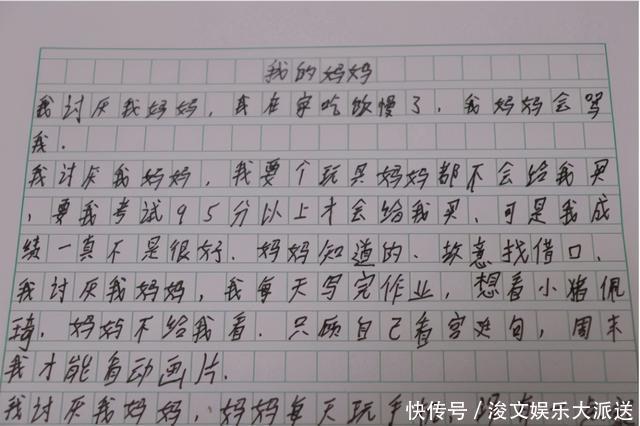 我的妈妈
我讨厌我妈妈，我在家吃饭慢了，我妈妈会骂
我.
我讨厌我妈妈，我要个玩具妈妈都不会给我买
，要我考试95分以上才会给我买、可是我成
绩一真不是很好.妈妈知道的、故意找借口.
我讨厌我妈妈，我每天写完作业，想看小猪佩
琦.妈妈不给我看.只顾自己看宫廷句，周末
我才能看动画片.
我讨厌我妈妈，妈妈每天玩手
快传号／浚文娱乐大派送